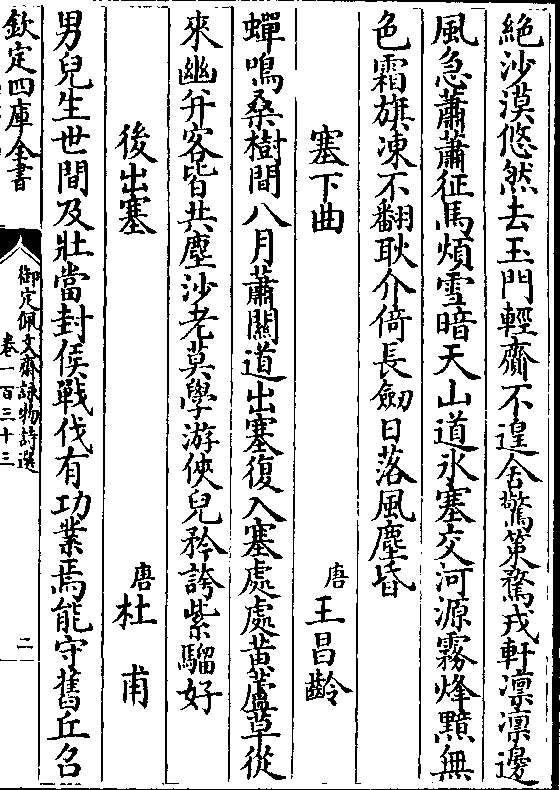 絶沙漠悠然去玉門輕齎不遑舍驚策騖戎軒凛凛邊
風急蕭蕭征馬煩雪暗天山道氷塞交河源霧烽黯無
色霜旗凍不翻耿介倚長劒日落風塵昏
塞下曲 唐 王昌齡
蟬鳴桑樹間八月蕭關道出塞復入塞處處黄蘆草從
來幽并客皆共塵沙老莫學游俠兒矜誇紫騮好
後出塞 唐 杜甫
男兒生世間及壯當封侯戰伐有功業焉能守舊丘召
欽定四庫全書
御定佩文齋詠物詩選
卷一百三十三
二